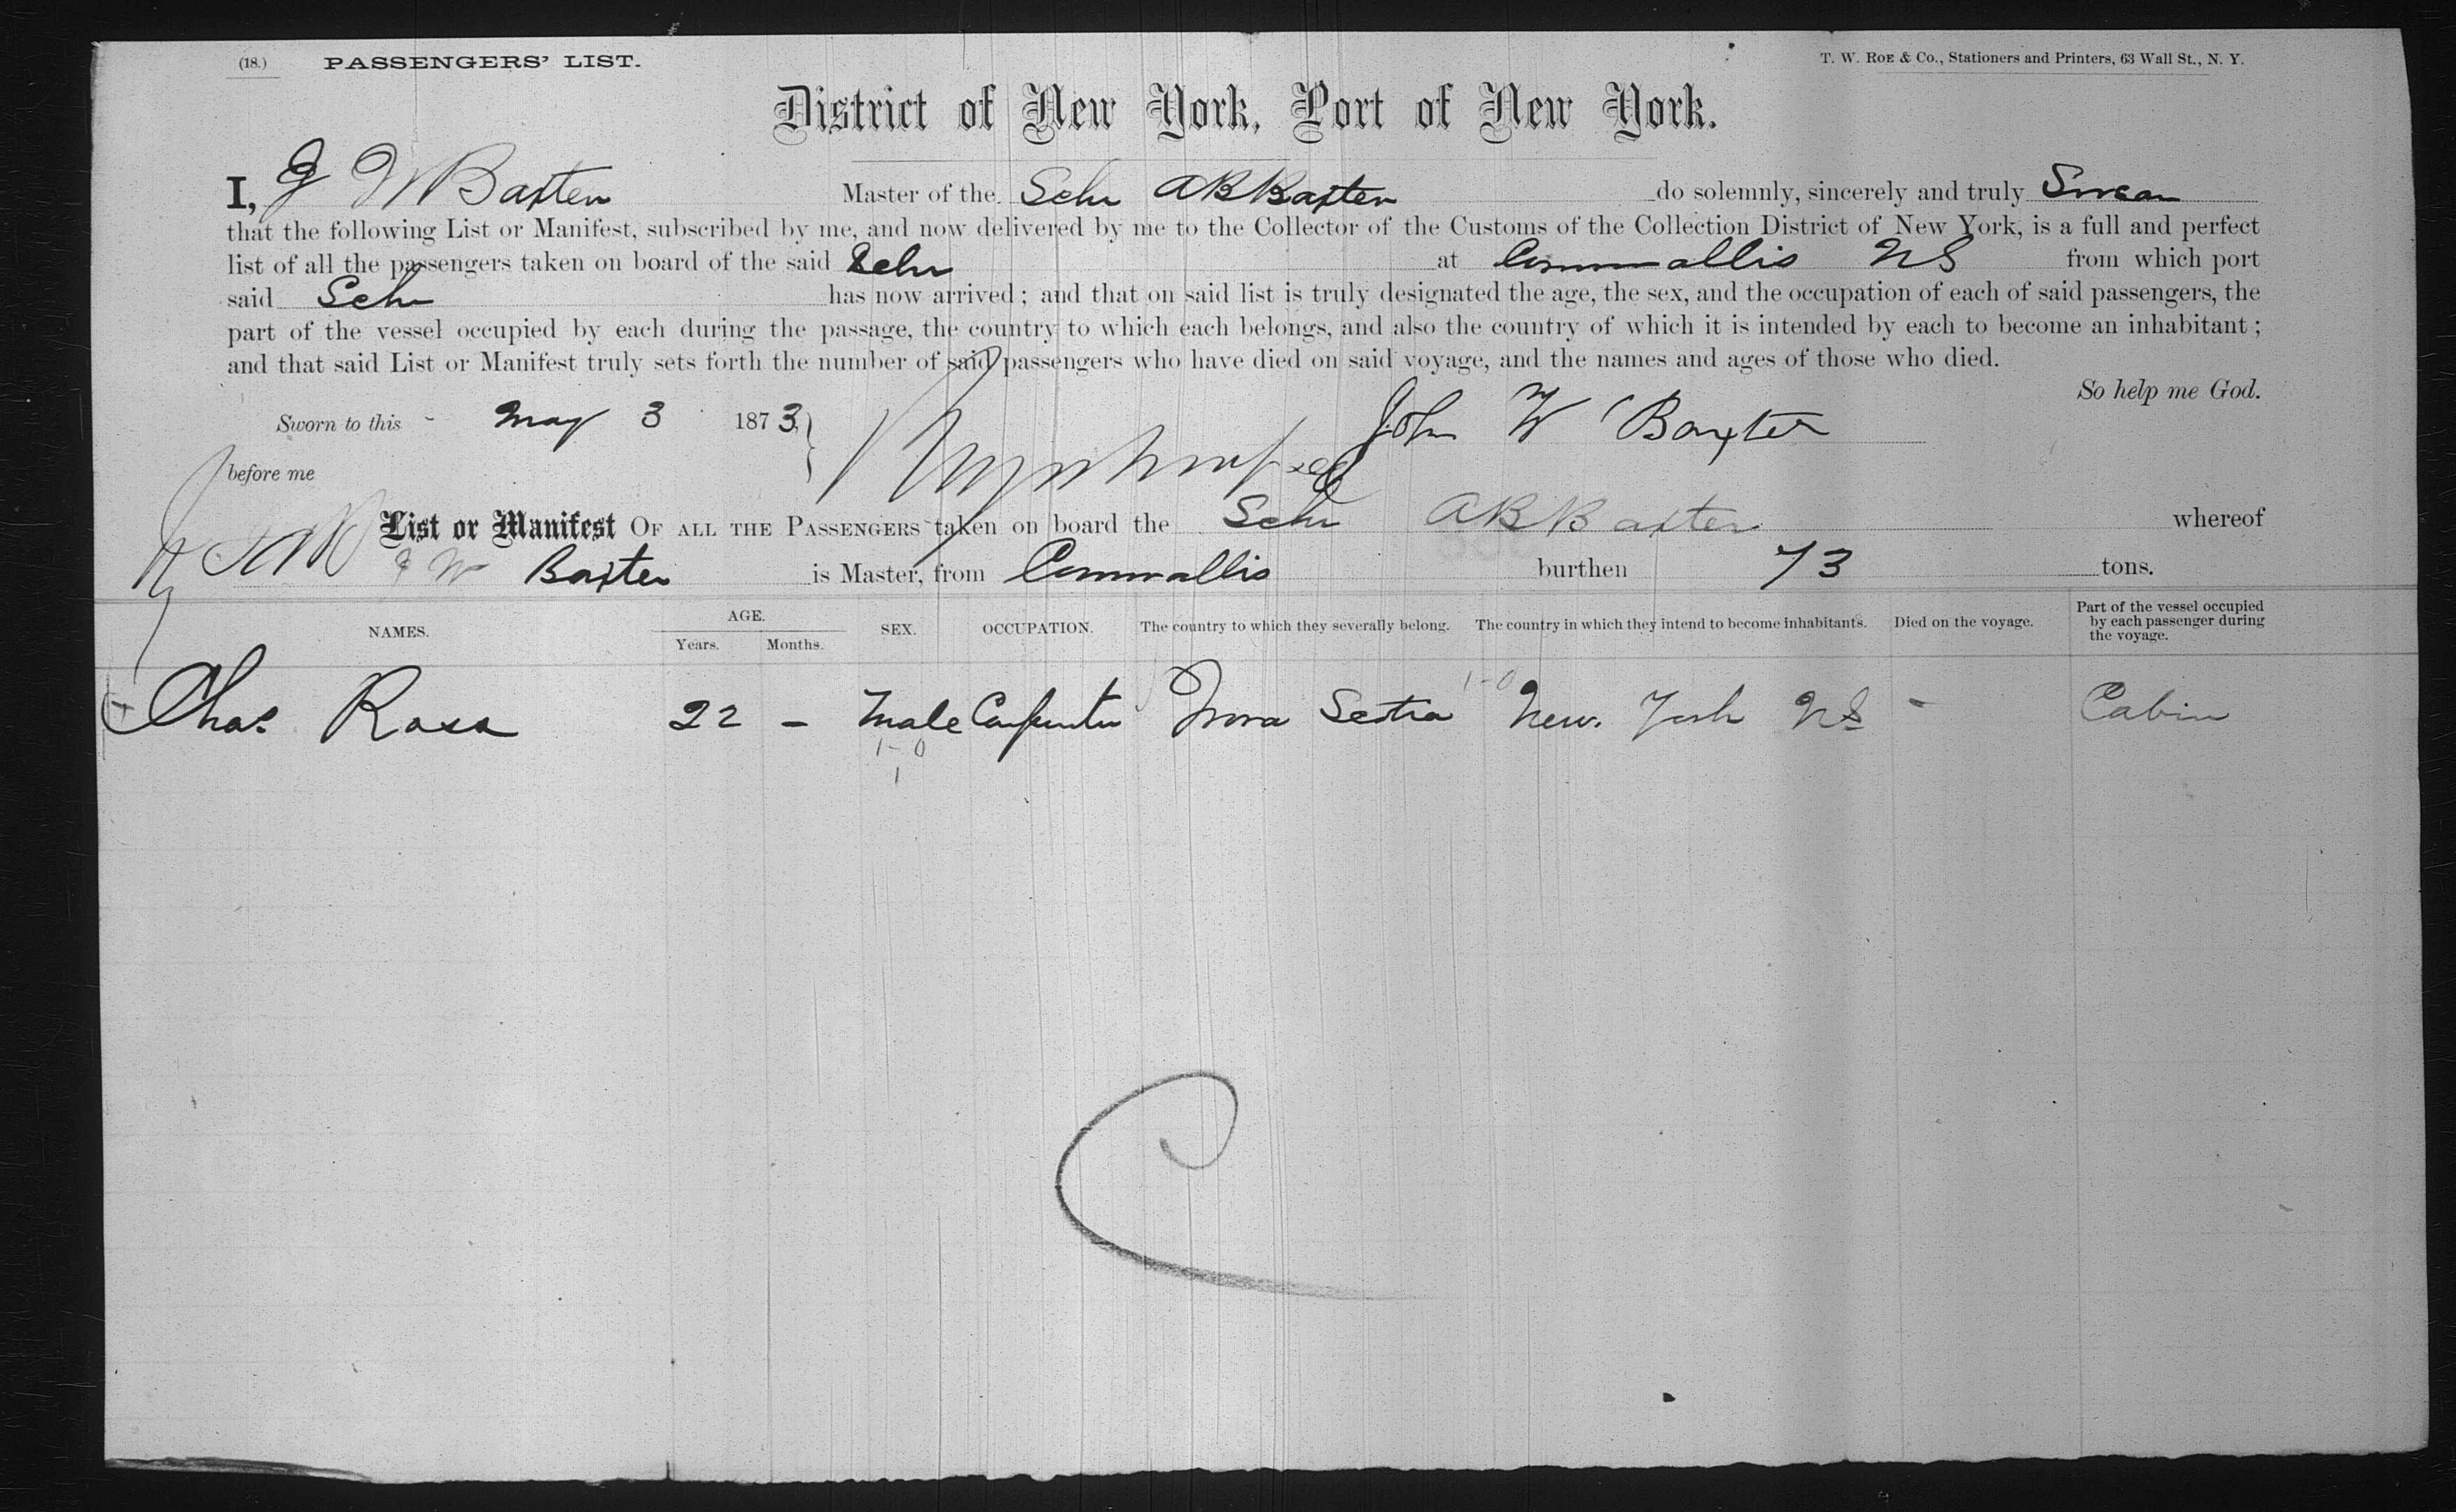 (18.) PASSENGERS' LIST. T. W. ROE & Co., Stationers and Printers, 63 Wall St., N. Y.
District of New York, Port of New York.
I, J W Baxter Master of the Schr A B Baxter do solemnly, sincerely and truly Swear
that the following List or Manifest, subscribed by me, and now delivered by me to the Collector of the Customs of the Collection District of New York, is a full and perfect
list of all the passengers taken on board of the said Schr at Cornwallis NS from which port
said Schr has now arrived; and that on said list is truly designated the age, the sex, and the occupation of each of said passengers, the
part of the vessel occupied by each during the passage, the country to which each belongs, and also the country of which it is intended by each to become an inhabitant;
and that said List or Manifest truly sets forth the number of said passengers who have died on said voyage, and the names and ages of those who died.
So help me God.
Sworn to this May 3 1873, John W Baxter
before me
List or Manifest OF ALL THE PASSENGERS taken on board the Schr A B Baxter whereof
J W Baxter is Master, from Cornwallis burthen 73 tons.
NAMES. AGE. Years. Months. SEX. OCCUPATION. The country to which they severally belong. The country in which they intend to become inhabitants. Died on the voyage. Part of the vessel occupied by each passenger during the voyage.
Chas Ross 22 - Male Carpenter Nova Scotia New York - Cabin
1-0
1-0
1
C